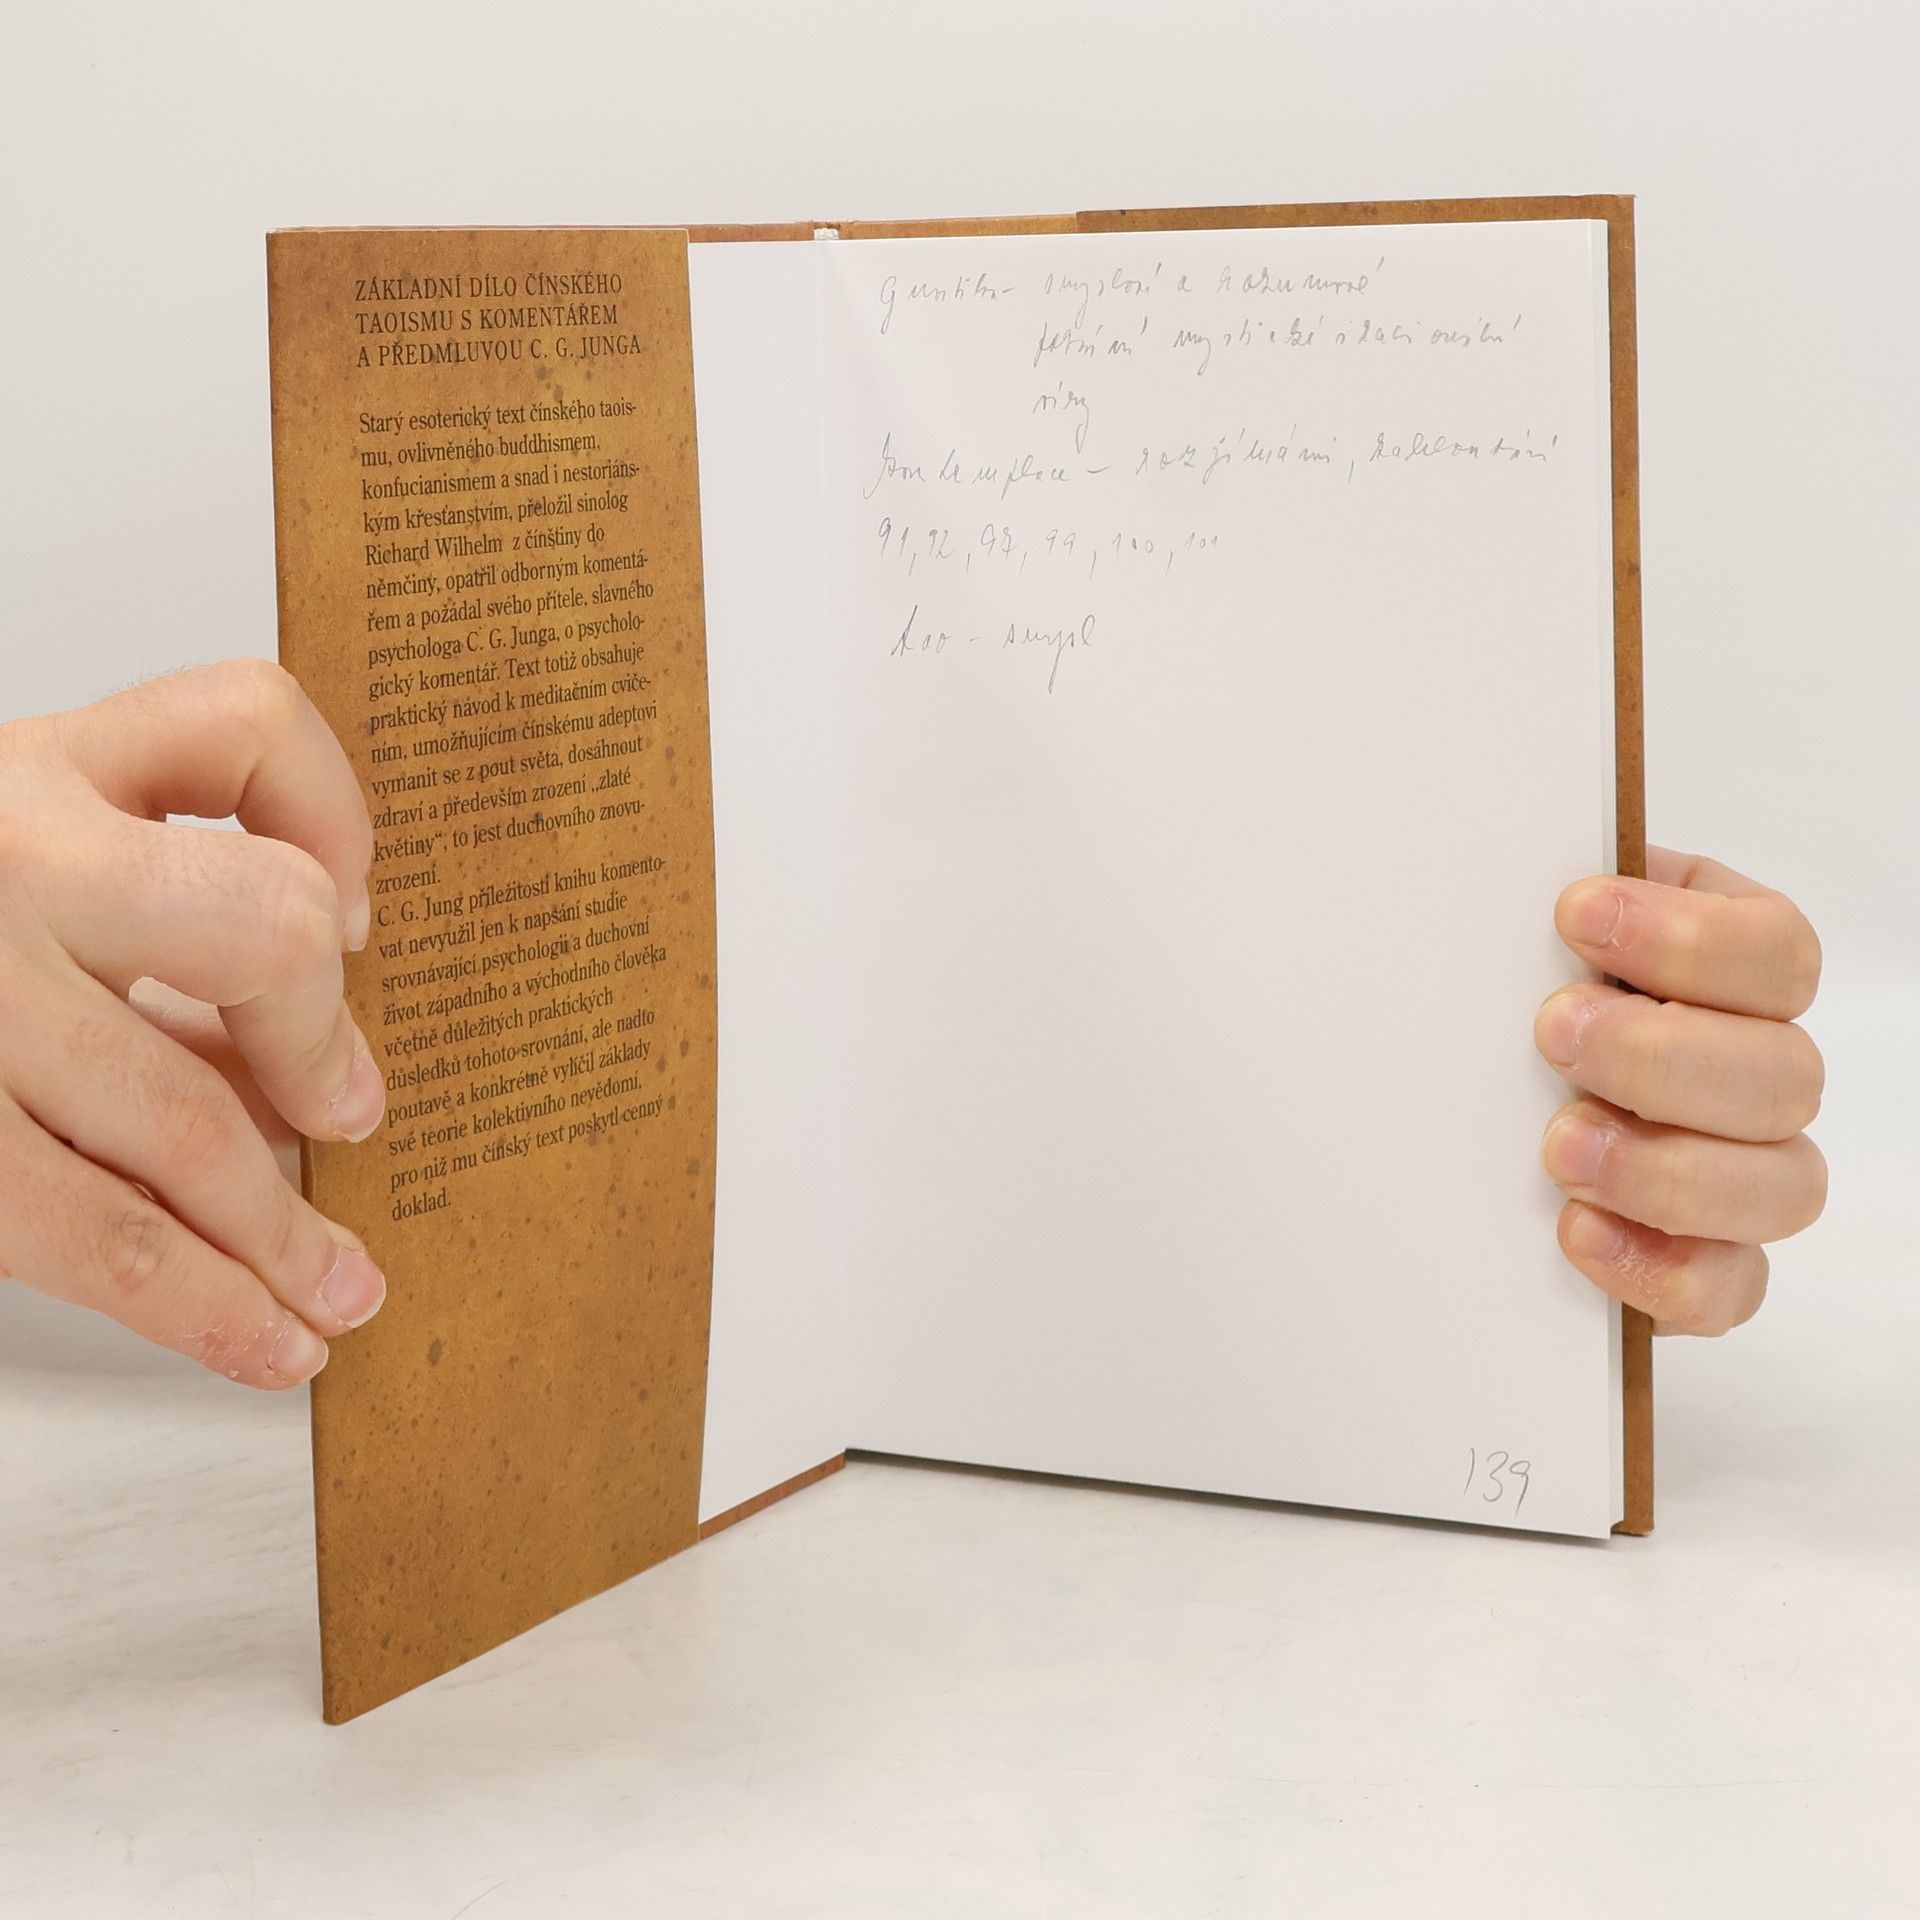 ZÁKLADNÍ DÍLO ČÍNSKÉHO
TAOISMU S KOMENTÁŘEM
A PŘEDMLUVOU C. G. JUNGA
Starý esoterický text čínského taois-
mu, ovlivněného buddhismem,
konfucianismem a snad i nestoriáns-
kým křesťanstvím, přeložil sinolog
Richard Wilhelm z čínštiny do
němčiny, opatřil odborným komentá-
řem a požádal svého přítele, slavného
psychologa C. G. Junga, o psycholo-
gický komentář. Text totiž obsahuje
praktický návod k meditačním cviče-
ním, umožňujícím čínskému adeptovi
vymanit se z pout světa, dosáhnout
zdraví a především zrození „zlaté
květiny“, to jest duchovního znovu-
zrození.
C. G. Jung příležitosti knihu komento-
vat nevyužil jen k napsání studie
srovnávající psychologii a duchovní
život západního a východního člověka
včetně důležitých praktických
důsledků tohoto srovnání, ale nadto
poutavě a konkrétně vylíčil základy
své teorie kolektivního nevědomí,
pro niž mu čínský text poskytl cenný
doklad.
Gnostika - smyslové a rozumové
mystické
víry
Kontemplace - rozjímání,
91, 92, 97, 99, 100, 101
tao - smysl
139